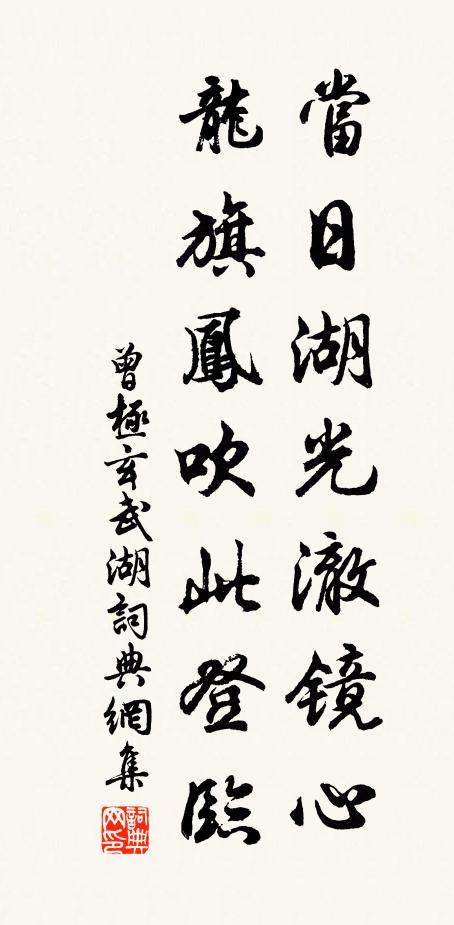 當日湖光澈鏡心
龍旗鳳吹此登臨
曾極玄武湖詞典網集
詞典网印